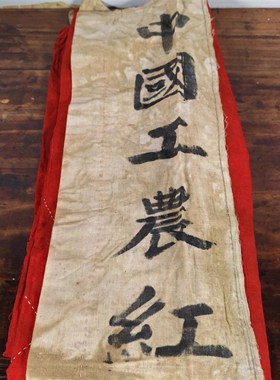 中國工農紅